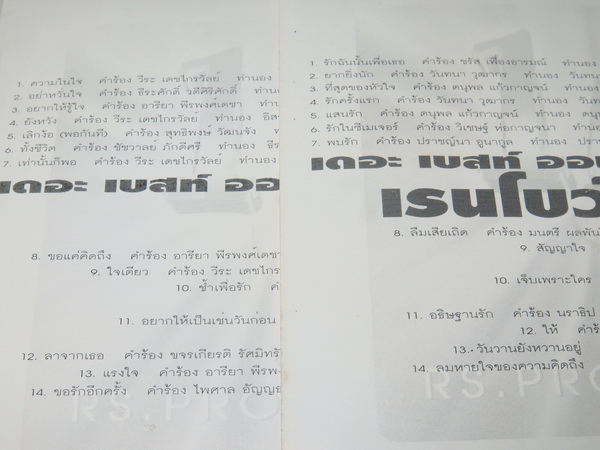 1. ความในใจ คำร้อง วีระ เดชไกรวัลย์ ทำนอง
2. อย่าหวั่นใจ คำร้อง ธีระศักดิ์ วดีศิริศักดิ์ ทำนอง
3. อยากให้รู้ใจ คำร้อง อารียา พีรพงศ์เดชา
4. ยังหวัง คำร้อง วีระ เดชไกรวัลย์ ทำนอง
5. เลิกง้อ (พอกันที) คำร้อง สุทธิพงษ์ วัฒนจัง
6. ทั้งชีวิต คำร้อง ชัชวาลย์ ภักดีศรี ทำนอง
7. เท่านั้นก็พอ คำร้อง วีระ เดชไกรวัลย์ ทำนอง
เดอะ เบสท์ ออ
8. ขอแค่คิดถึง คำร้อง อารียา พีรพงศ์เดชา
9. ใจเดียว คำร้อง วีระ เดชไกร
10. ช้ำเพื่อรัก
11. อยากให้เป็นเช่นวันก่อน
12. ลาจากเธอ คำร้อง ขจรเกียรติ รัศมิทร์
13. แรงใจ คำร้อง อารียา พีรพงศ์
14. ขอรักอีกครั้ง คำร้อง ไพศาล อัญญ
RS.PRO
1. รักฉันนั้นเพื่อเธอ คำร้อง ชรัส เฟื่องอารมณ์ ทำนอง
2. ยากยิ่งนัก คำร้อง วันทนา วุฒากร ทำนอง วันทน
3. ที่สุดของหัวใจ คำร้อง ดนุพล แก้วกาญจน์ ทำนอง
4. รักครั้งแรก คำร้อง วันทนา วุฒากร ทำนอง วันทน
5. แสนรัก คำร้อง ดนุพล แก้วกาญจน์ ทำนอง ดนุ
6. รักในซีเมเจอร์ คำร้อง วิเชษฐ์ ห่อกาญจนา ทำนอง
7. พบรัก คำร้อง ปราชญ์นา อูนากูล ทำนอง ปรา
เดอะ เบสท์ ออ
เรนโบว์
8. ลืมเสียเถิด คำร้อง มนตรี ผลพัน
9. สัญญาใจ
10. เจ็บเพราะใคร
11. อธิษฐานรัก คำร้อง นราธิป
12. ให้
13. วันวานยังหวานอยู่
14. ลมหายใจของความคิดถึง
RS.PRO